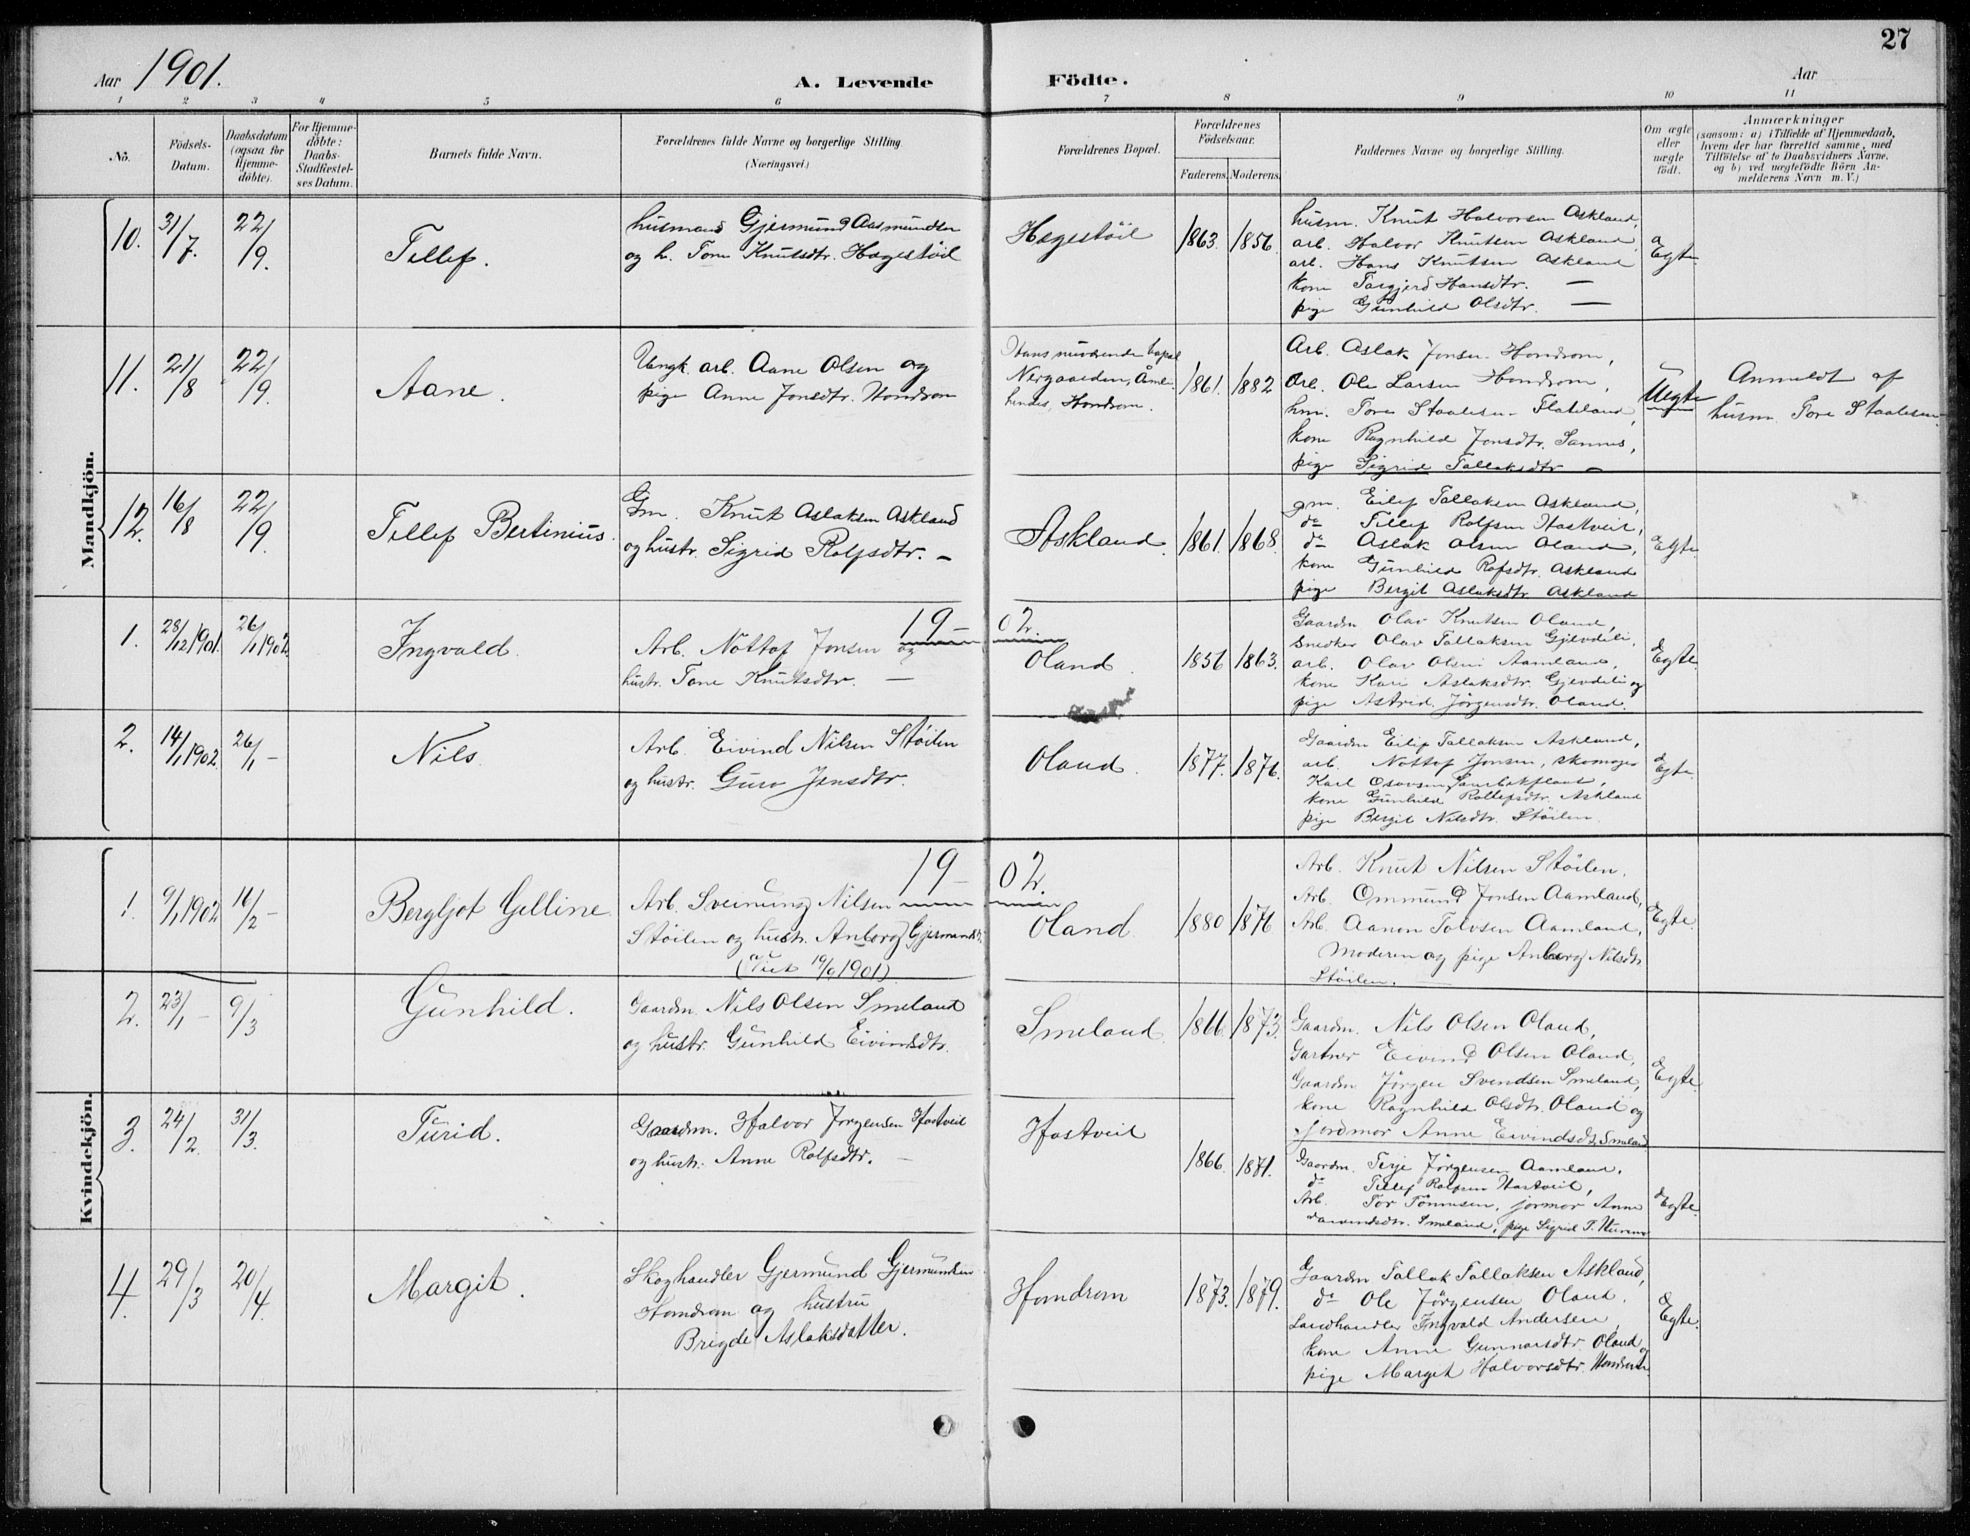 27
Aar 1901. A. Levende Födte. Aar
1 2 3 4 5 6 7 8 9 10 11
No. Födsels-Datum. Daabsdatum (ogsaa for Hjemme-döbte). For Hjemme-döbte: Daabs-Stadfæstel-ses Datum. Barnets fulde Navn. Forældrenes fulde Navne og borgerlige Stilling (Næringsvei.) Forældrenes Bopæl. Forældrenes Födselsaar. Faderens. Moderens. Faddernes Navne og borgerlige Stilling. Om ægte eller uægte födt. Anmærkninger (saasom: a) i Tilfælde af Hjemmedaab, hvem der har forrettet samme, med Tilföielse af to Daabsvidners Navne, og b) ved uægtefödte Börn An-melderens Navn m. V.)
Mandkjön.
10. 31/7. 22/9. Tellef.
husmand Gjermund Aasmundsen
og h. Tone Knutsdtr. Hægestöil
Hægestöil 1863. 1856.
husm. Knut Halvorsen Askland,
arb. Halvor Knutsen Askland,
arb. Hans Knutsen Askland
kone Targjerd Hansdtr. —
pige Gunhild Olsdtr. —
Egte
11. 21/8 22/9. Aane.
Ungk. arb. Aane Olsen og
pige Anne Jonsdtr. Homdrom
Hans nuværende bopæl
Nergaarden, Åml.
hendes, Homdrom.
1861. 1882
Arb. Aslak Jonsen Homdrom,
Arb. Ole Larsen Homdrom,
hm. Tore Staalesen Flateland,
kone Ragnhild Jonsdtr. Sannes,
pige Sigrid Tallaksdtr —
Uegte
Anmeldt af
husm. Tore Staalesen
12. 16/8 22/9. Tellef Bertinius.
Gm. Knut Aslaksen Askland
og hustr. Sigrid Rolfsdtr. —
Askland. 1861. 1868.
gm. Eilef Tallaksen Askland,
do Tellef Rolfsen Hastveit,
do Aslak Olsen Oland,
kone Gunhild Rofsdtr. Askland
pige Bergit Aslaksdtr Askland
Egte
19— 02.
1. 28/12 1901. 26/1 1902. Ingvald.
Arb. Nottof Jonsen og
hustr. Tone Knutsdtr. —
Oland. 1856 1863.
Gaardm Olav Knutsen Oland,
Snedker Olav Tallaksen Gjevdeli,
arb. Olav Olsen Aamland,
kone Kari Aslaksdtr. Gjevdeli og
pige Astrid Jörgensdtr. Oland.
Egte.
2. 14/1 1902. 26/1 — Nils.
Arb. Eivind Nilsen Stöilen
og hustr. Guro Jensdtr.
Oland. 1877. 1876.
Gaardm Eilef Tallaksen Askland,
arb. Nottof Jonsen, skomager
Karl
kone Gunhild Rollefsdtr. Askland
pige Bergit Nilsdtr. Stöilen.
Egte.
Kvindekjön.
19— 02.
1. 9/1 1902 16/2 — Bergljot Gelline
Arb. Sveinung Nilsen
Stöilen og hustr. Anborg Gjermundsd.
(Viet 19/6 1901)
Oland. 1880 1876
Arb. Knut Nilsen Stöilen,
Arb. Ommund Jonsen Aamland,
Arb. Aanon Tolvsen Aamland,
Moderen og pige Anborg Nilsdtr
Stöilen.
Egte.
2. 23/1 — 9/3 Gunhild.
Gaardm. Nils Olsen Smeland
og hustr. Gunhild Eivindsdtr.
Smeland. 1866. 1873.
Gaardm. Nils Olsen Oland,
Gartner Eivind Olsen Oland,
Gaardm Jörgen Svendsen Smeland,
kone Ragnhild Olsdtr. Oland og
jordmor Anne Eivindsdt. Smeland
Egte
3. 24/2. 31/3. Turid.
Gaardm. Halvor Jörgensen Hastveit
og hustr. Anne Rolfsdtr. —
Hastveit 1866. 1871.
Gaardm. Terje Jörgensen Aamland,
do Tellef Rolfsen Hastveit,
Arb. Tor Tonnesen, jormor Anne
Smeland, pige Sigrid T.
Egte.
4. 29/3 20/4. Margit.
Skoghandler Gjermund Gjermundsen
Homdrom og hustru
Brigde Aslaksdatter.
Homdrom 1873. 1879.
Gaardm Tallak Tallaksen Askland,
do Ole Jörgensen Oland,
Landhandler Ingvald Andersen
kone Anne Gunnarsdtr. Oland og
pige Margit Halvorsdtr. Homdrom
Egte.